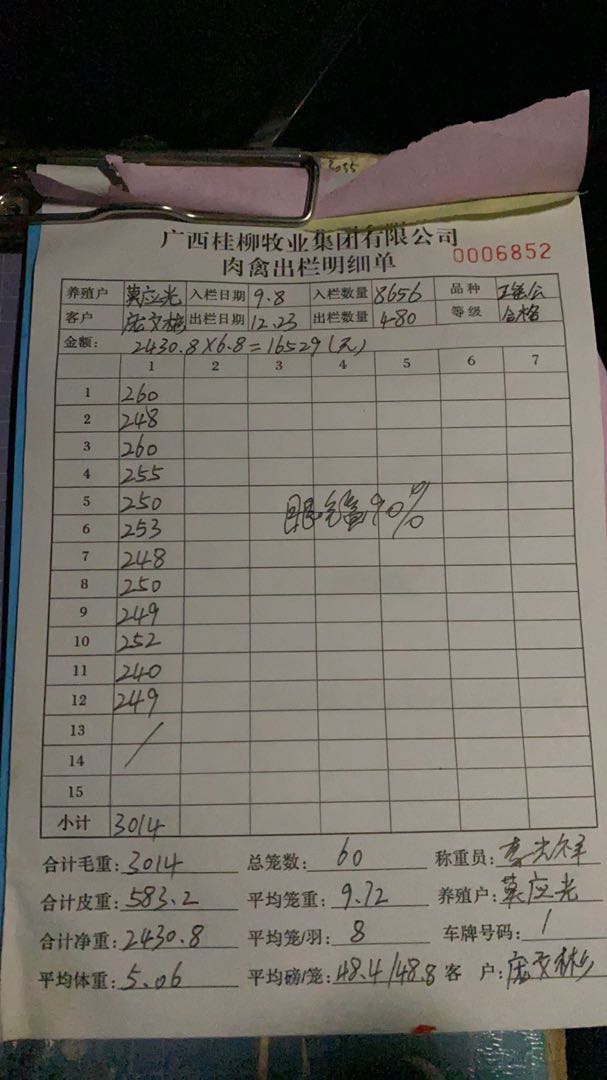 2055
广西桂柳牧业集团有限公司
肉禽出栏明细单
0006852
养殖户 莫应光 入栏日期 9.8 入栏数量 8656 品种
客户 庞文彬 出栏日期 12.23 出栏数量 480 等级 合格
金额: 2430.8×6.8=16529(元)
1 2 3 4 5 6 7
1 260
2 248
3 260
4 255
5 250
6 253
7 248
8 250
9 249
10 252
11 240
12 249
13
14
15
90%
小计 3014
合计毛重: 3014 总笼数: 60 称重员:
合计皮重: 583.2 平均笼重: 9.72 养殖户: 莫应光
合计净重: 2430.8 平均笼/羽: 8 车牌号码: 1
平均体重: 5.06 平均磅/笼: 48.4/48.8 客 户: 庞文彬